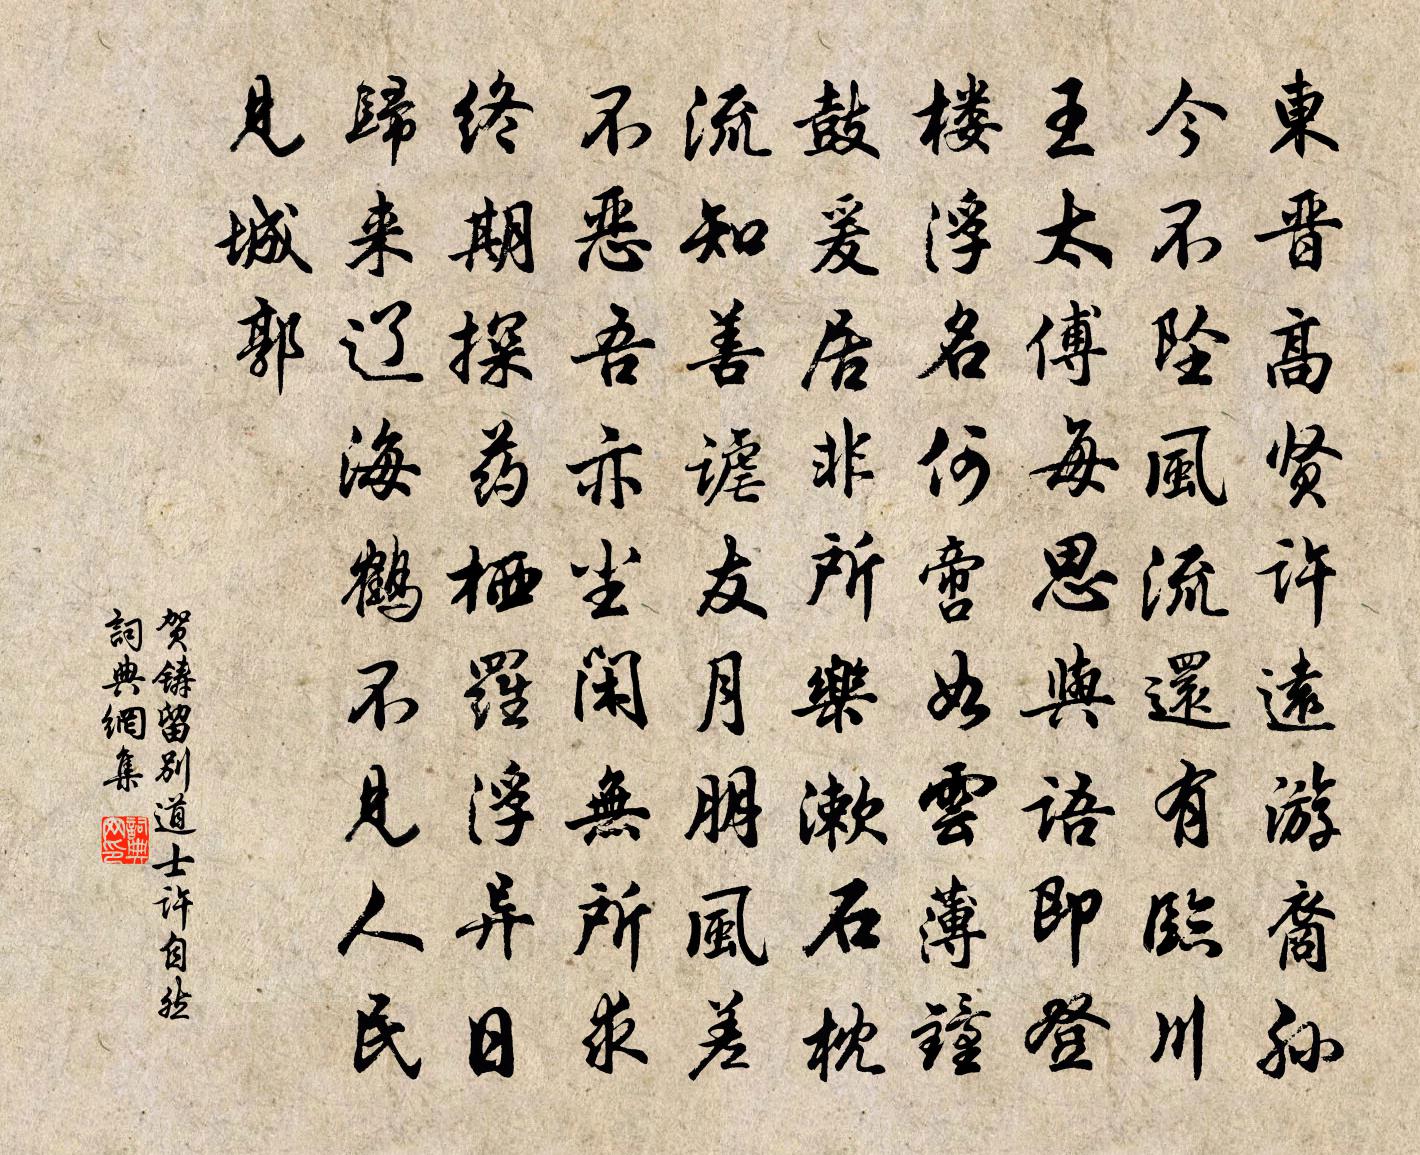 東晋高贤許遠游裔孙
今不坠風流還有臨川
王太傅每思與語即登
楼浮名何啻如雲薄鐘
鼓爰居非所樂漱石枕
流知善謔友月朋風差
不恶吾亦坐闲無所求
终期探药栖羅浮异日
歸来辽海鶴不見人民
見城郭
贺鑄留别道士许自然
詞典網集
詞典网印